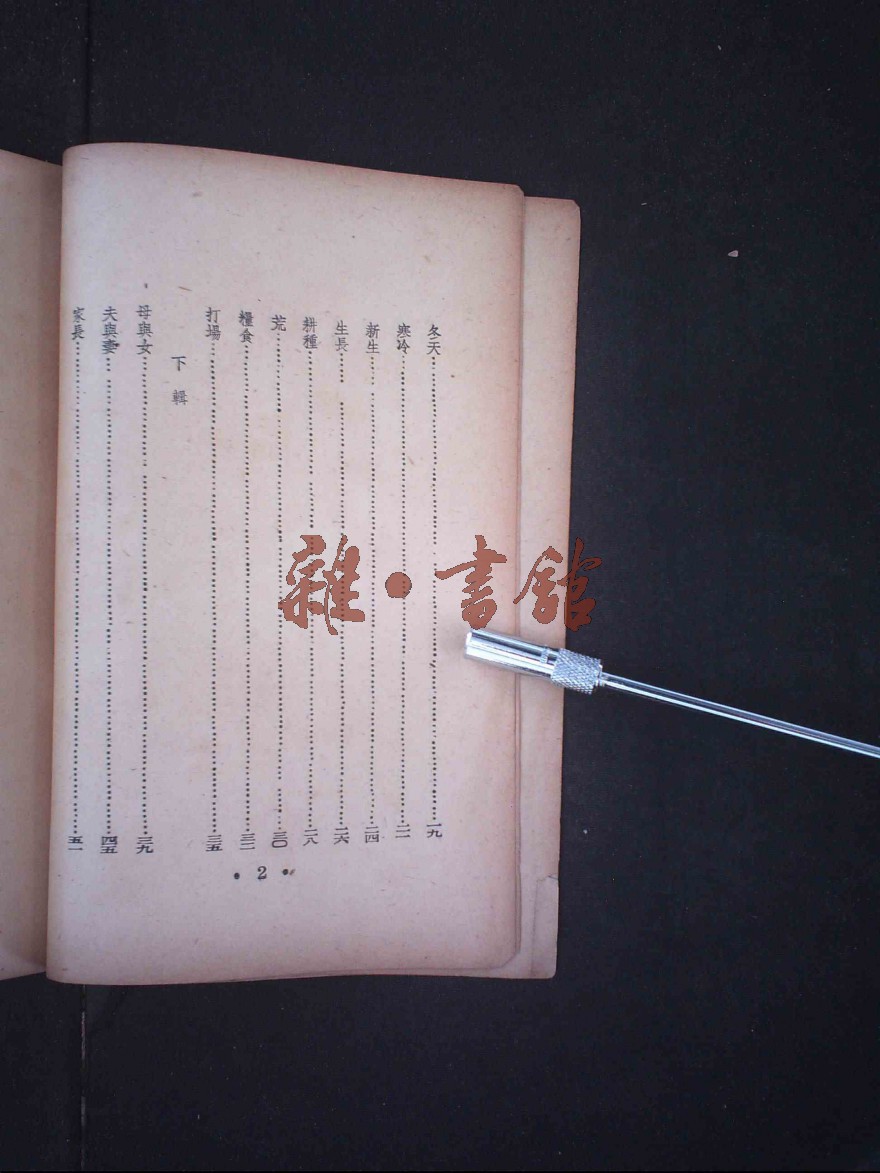 冬天……一九
寒冷……二二
新生……二四
生長……二六
耕種……二八
荒……三〇
糧食……三二
打場……三五
下輯
母與女……三九
夫與妻……四五
家長……五一
• 2 •
雜•書館